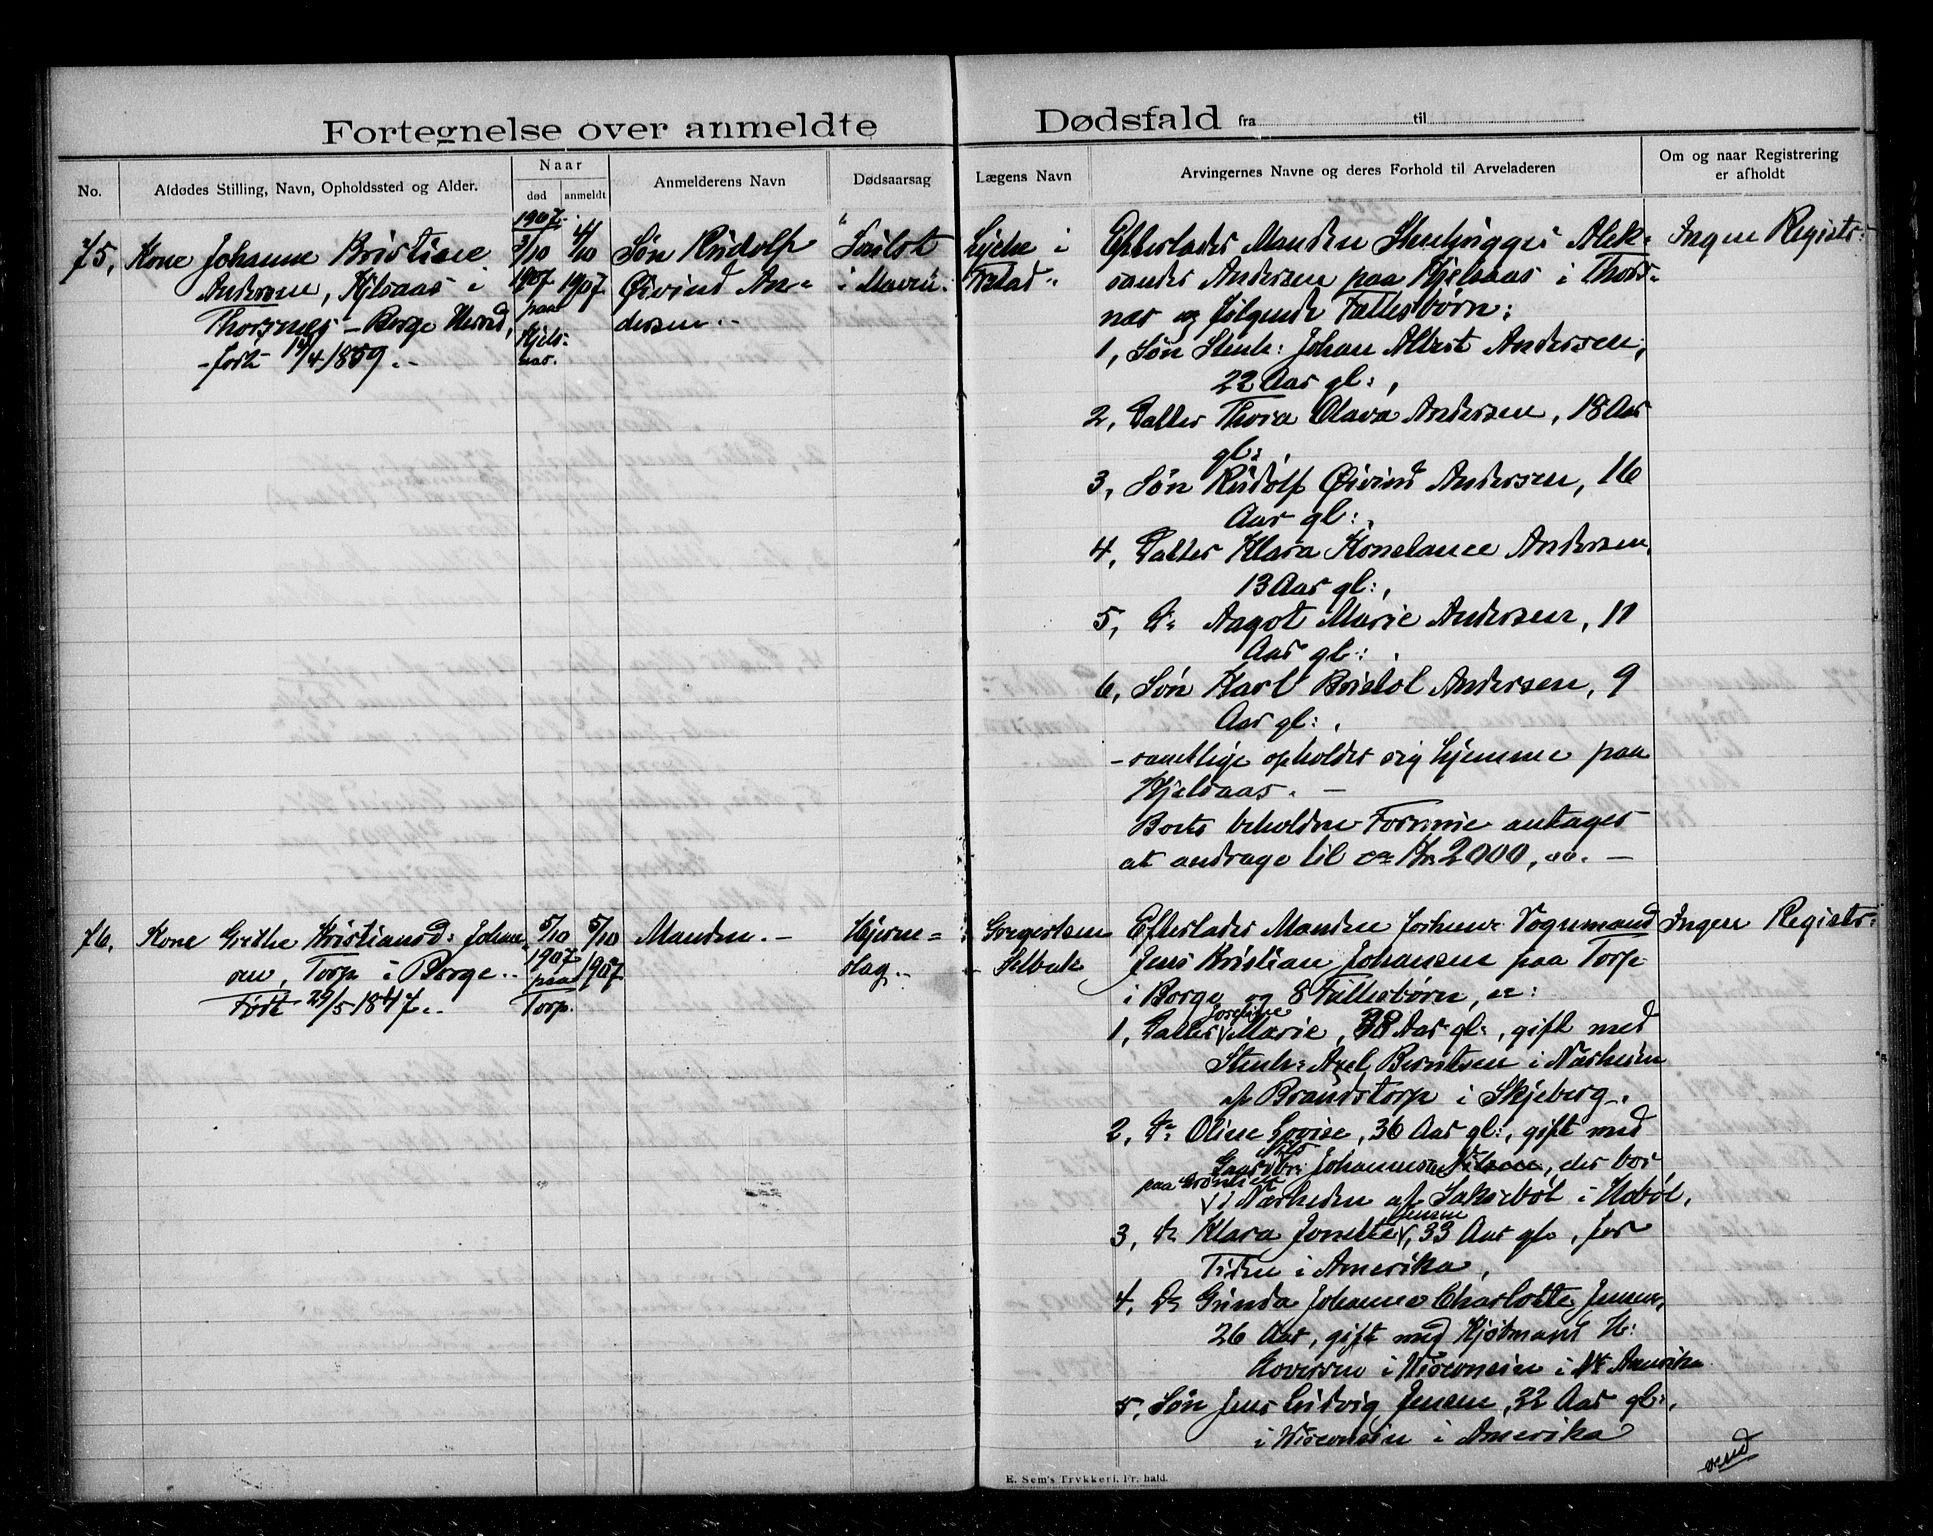 Fortegnelse over anmeldte Dødsfald fra til
No.
Afdødes Stilling, Navn, Opholdssted og Alder.
Naar
død
anmeldt
Anmelderens Navn
Dødsaarsag
Lægens Navn
Arvingernes Navne og deres Forhold til Arveladeren
Om og naar Registrering
er afholdt
75,
Kone Johanne Kristine
Andersen, Kjelsaas i
Thorsnes - Borge Herred,
- født 19/4 1859. -
1907.
3/10
1907
paa
Kjels-
aas.
4/10
1907
Søn Rudolf
Øivind An-
dersen. -
i Maven.
Lyche i
F.stad.
Efterlader Manden Stenhugger Alek-
sander Andersen paa Kjelsaas i Thors-
næs og følgende Fællesbørn:
1, Søn Stenh: Johan Albert Andersen,
22 Aar gl:,
2, Datter Thora Olava Andersen, 18 Aar
gl:,
3, Søn Rudolf Øivind Andersen, 16
Aar gl:,
4, Datter Klara Konstance Andersen,
13 Aar gl:,
5, Do Aagot Marie Andersen, 11
Aar gl:,
6, Søn Karl Kristol Andersen, 9
Aar gl:,
- samtlige opholder sig hjemme paa
Kjelsaas. -
Boets beholdne Formue antages
at andrage til ca Kr. 2000,00. -
Ingen Registr:
76,
Kone Grethe Kristiansd: Johan-
sen, Torp i Borge. -
Født 29/5 1847. -
5/10
1907
paa
Torp.
5/10
1907
Manden. -
Hjerne-
slag. -
Gregertsen
Selbak
Efterlader Manden forhenv. Vognmand
Jens Kristian Johansen paa Torp
i Borge og 8 Fællesbørn, er:
1, Datter Josefine Marie, 38 Aar gl:, gift med
Stenh: Axel Berntsen i Nærheden
af Brandstorp i Skjeberg. -
2, Do Oline Lovise, 36 Aar gl:, gift med
Gaardbr: Nils Johannesen, der bor
paa Grønlien
i Nærheden af Saksebøl i Hobøl,
3, Do Klara Jonette Jensen, 33 Aar gl., for
Tiden i Amerika,
4, Do Gunda Johanne Charlotte Jensen,
26 Aar, gift med Kjøbmand H:
Hoversen i Wisconsin i N. Amerika
5, Søn Jens Ludvig Jensen, 32 Aar gl:,
i Wisconsin i Amerika
Ingen Registr:
vend
E. Sem's Trykkeri, Fr.hald.